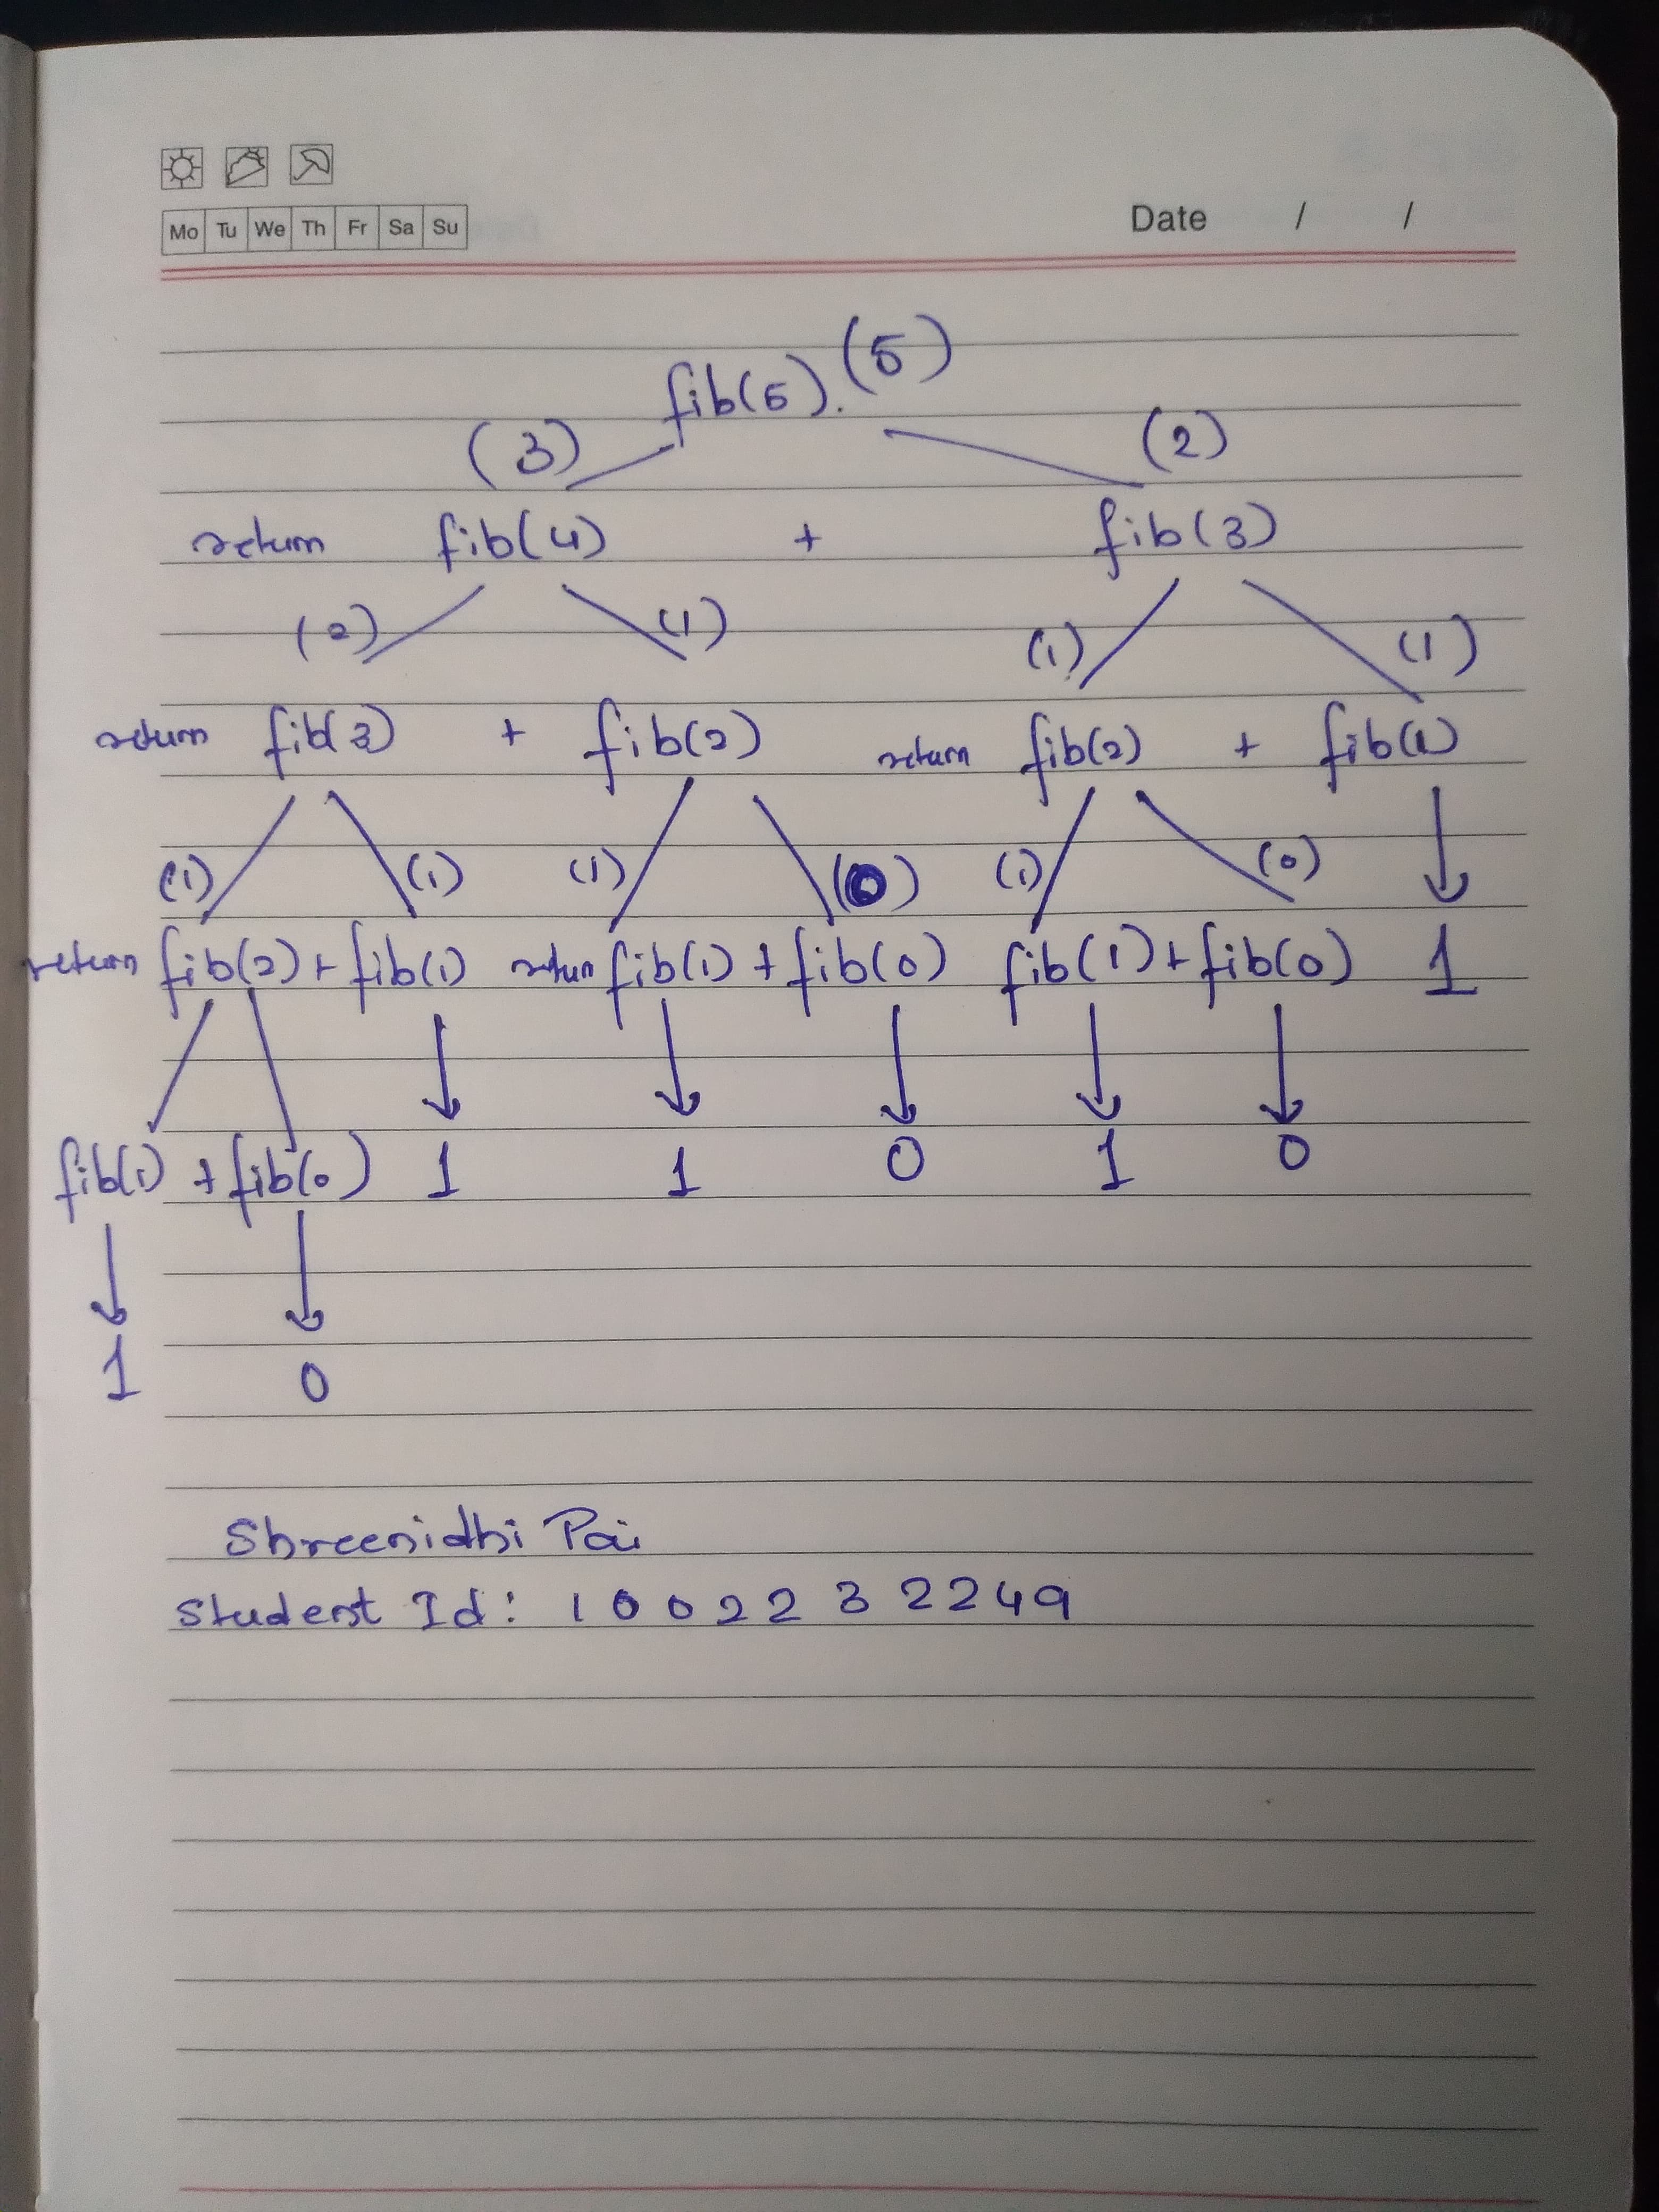 Mo Tu We Th Fr Sa Su Date / /
fib(5). (5)
(3) (2)
return fib(4) + fib(3)
(2) (1) (1) (1)
return fib(3) + fib(2) return fib(2) + fib(1)
(1) (1) (1) (0) (1) (0)
return fib(2) + fib(1) return fib(1) + fib(0) fib(1) + fib(0) 1
fib(1) + fib(0) 1 1 0 1 0
1 0
Shreenidhi Pai
Student Id: 1002232249